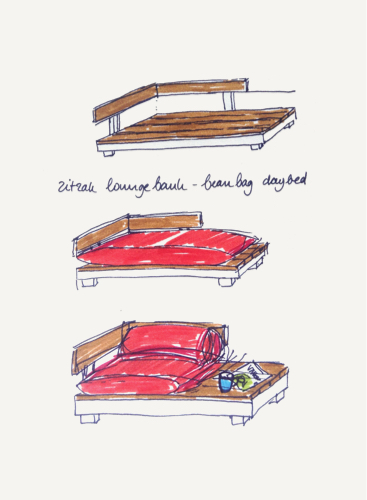 zitzak lounge bank - bean bag daybed